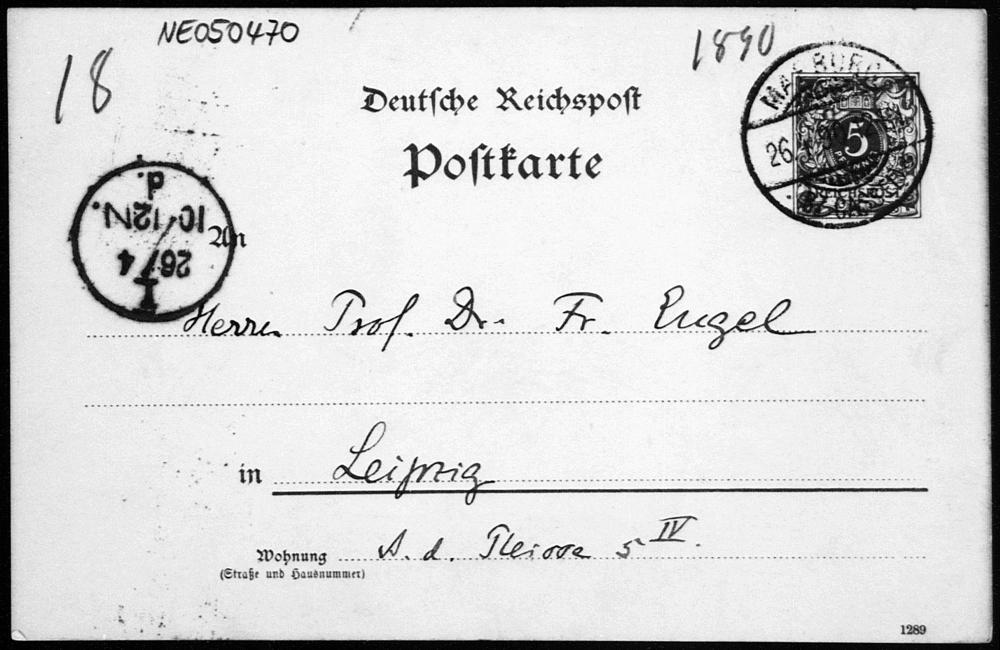 NE050470
18
1890
Deutsche Reichspost
Postkarte
MARBURG
26
5
d.
10-12N.
26/4
I
An
Herrn Prof. Dr. Fr. Engel
in Leipzig
Wohnung A. d. Pleisse 5 IV.
(Straße und Hausnummer)
1289